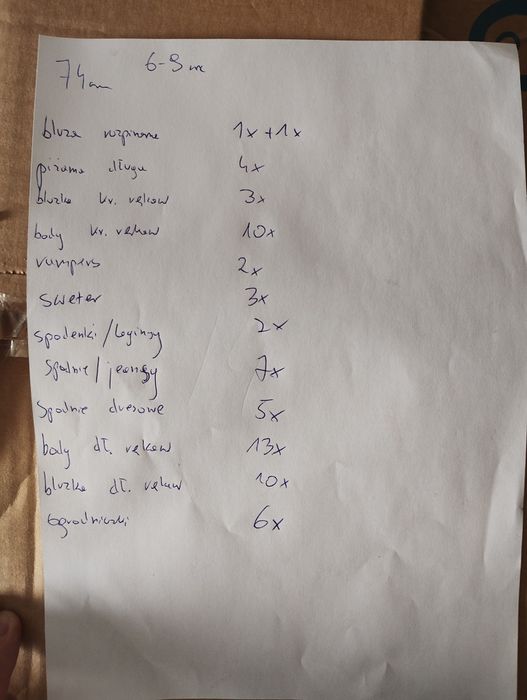 74cm 6-9 mc
bluza rozpinana 1x + 1x
piżama długa 4x
bluzka kr. rękaw 3x
body kr. rękaw 10x
rampers 2x
sweter 3x
spodenki/leginsy 2x
spodnie/jeansy 7x
spodnie dresowe 5x
body dł. rękaw 13x
bluzka dł. rękaw 10x
ogrodniczki 6x